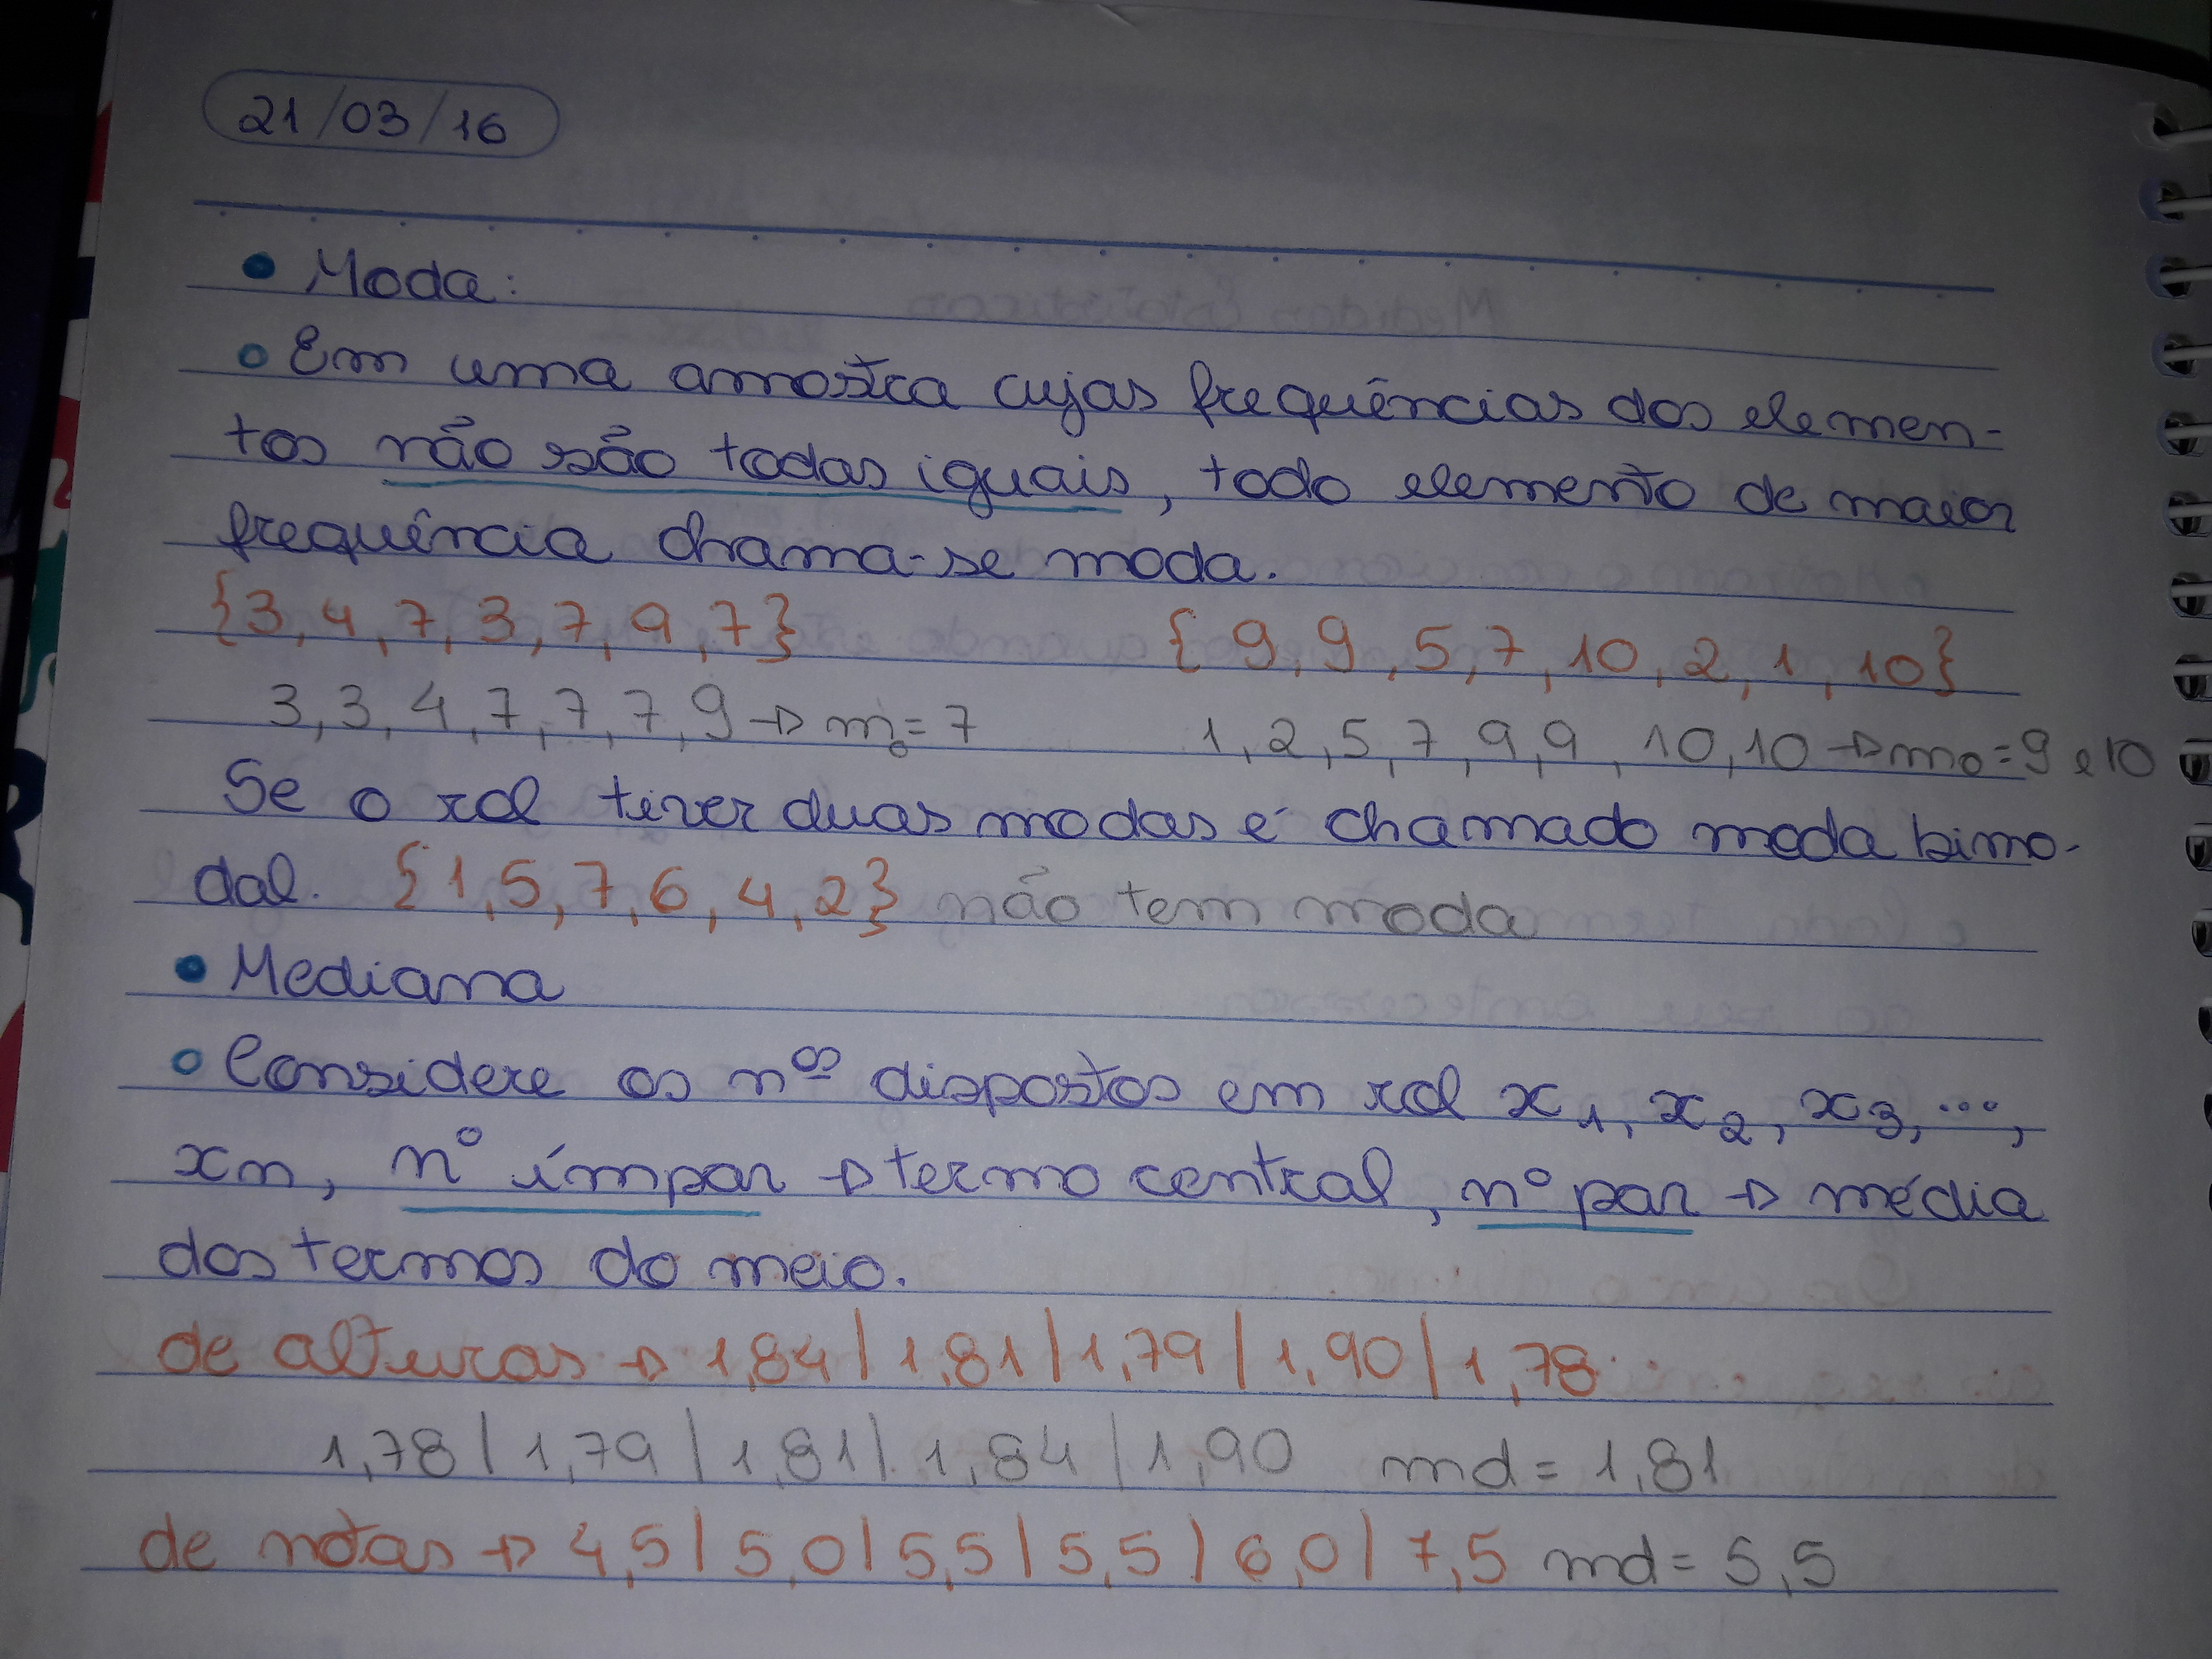 21/03/16
• Moda:
∘ Em uma amostra cujas frequências dos elemen-
tos não são todas iguais, todo elemento de maior
frequência chama-se moda.
{3, 4, 7, 3, 7, 9, 7} { 9, 9, 5, 7, 10, 2, 1, 10}
3, 3, 4, 7, 7, 7, 9 → mo = 7 1, 2, 5, 7, 9, 9, 10, 10 → mo = 9 e 10
Se o rol tiver duas modas é chamado moda bimo-
dal. {1, 5, 7, 6, 4, 2} não tem moda
• Mediana
∘ Considere os nºs dispostos em rol x1, x2, x3, ...,
xn, nº ímpar → termo central, nº par → média
dos termos do meio.
de alturas → 1,84 | 1,81 | 1,79 | 1,90 | 1,78
1,78 | 1,79 | 1,81 | 1,84 | 1,90 md = 1,81
de notas → 4,5 | 5,0 | 5,5 | 5,5 | 6,0 | 7,5 md = 5,5